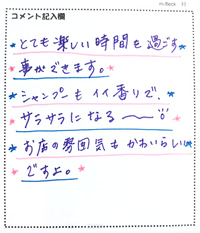 コメント記入欄
とても楽しい時間を過ごす
事ができます。
シャンプーもイイ香りで、
サラサラになる〜
お店の雰囲気もかわいらしい
ですよ。